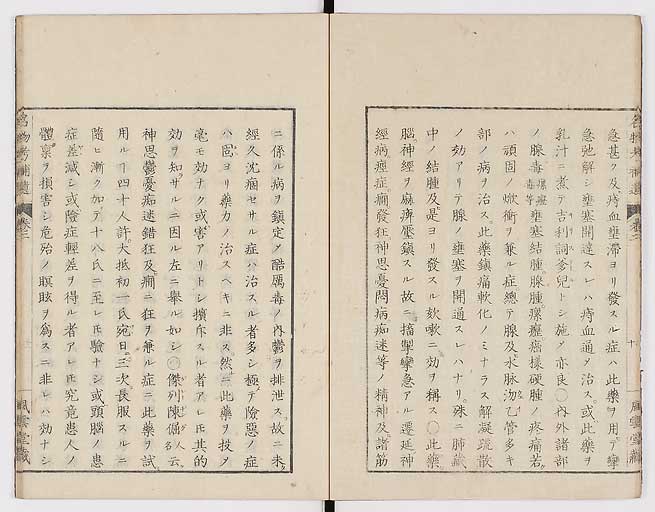 急甚ク及ヒ痔血壅滞ヨリ發スル症ハ此藥ヲ用テ攣
急弛解シ壅塞開達スレハ痔血通ス治ス。或此藥ヲ
乳汁ニ煮テ吉利詞爹兒トシ施ス亦良〇内外諸部
ノ腺毒瘰癧毒等壅塞結腫腺腫瘰癧癌様硬腫ノ疼痛若
ハ頑固ノ焮衝ヲ兼ル症總テ腺及水脉汋乙管多キ
部ノ病ヲ治ス。此藥鎮痛軟化ノミナラス解凝疏散
ノ効アリテ腺ノ壅塞ヲ開通スレハナリ。殊ニ肺臓
中ノ結腫及是ヨリ發スル欬嗽ニ効ヲ稱ス〇此藥
腦神經ヲ麻痺壓鎮スル故ニ搐掣攣急アル遷延神
經病癲癇發狂神思憂悶病痴迷等ノ精神及諸筋
ニ係ル病ヲ鎮定ス酷厲毒ノ内鬱ヲ排泄ス。故ニ未タ
經久沈痼セサル症ハ治スル者多シ極テ險惡ノ症
ハ固ヨリ藥力ノ治スヘキニ非ス然ニ此藥ヲ投ス
毫モ効ナク或害アリトシ擯斥スル者アレ𪜈其的
効ヲ知サルニ因ル左ニ舉ル如シ〇傑列陳傴人名云。
神思鬱憂痴迷錯狂及癇ニ狂ヲ兼ル症ニ此藥ヲ試
用ルヿ四十人許。大抵初一氏宛日三次長服スルニ
隨ヒ漸ク加テ十八氏ニ至レ𪜈驗ナシ或頭腦ノ患
症差減シ或險症輕差ヲ得ル者アレ𪜈究竟患人ノ
體稟ヲ損害シ危殆ノ瞑眩ヲ爲スニ非レハ効ナシ
名物考補遺 卷二
風雲堂藏